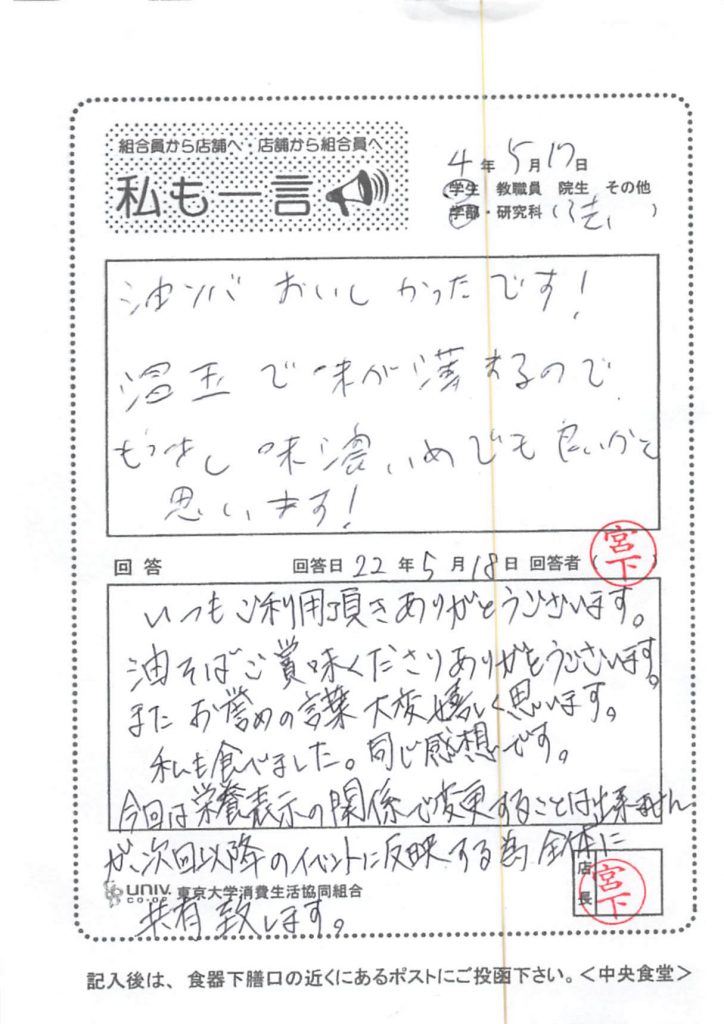 組合員から店舗へ・店舗から組合員へ
私も一言
4年5月17日
学生 教職員 院生 その他
学部・研究科( 法 )
油ソバ おいしかったです!
温玉で味が薄まるので
もう少し味濃いめでも良いかと
思います!
回答 回答日22年5月18日 回答者(宮下)
いつもご利用頂きありがとうございます。
油そばご賞味くださりありがとうございます。
またお誉めの言葉大変嬉しく思います。
私も食べました。同じ感想です。
今回は栄養表示の関係で変更することは出来ません
が、次回以降のイベントに反映する為全体に
共有致します。
UNIV. CO-OP 東京大学消費生活協同組合
店長 宮下
記入後は、食器下膳口の近くにあるポストにご投函下さい。<中央食堂>